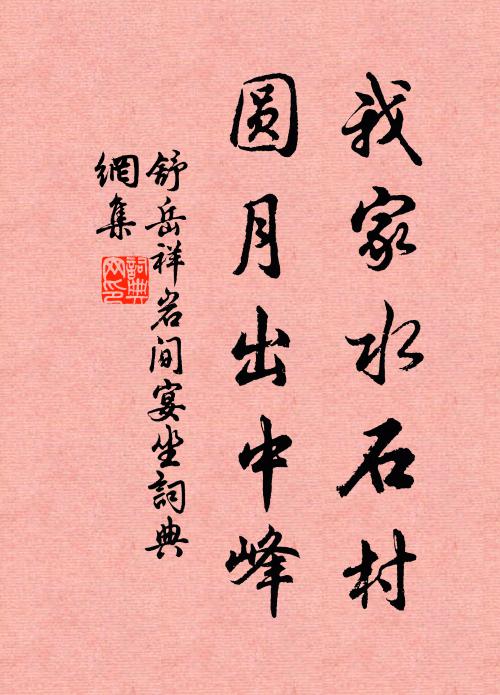 我家水石村
圆月出中峰
舒岳祥岩间宴坐詞典
網集
詞典
网印